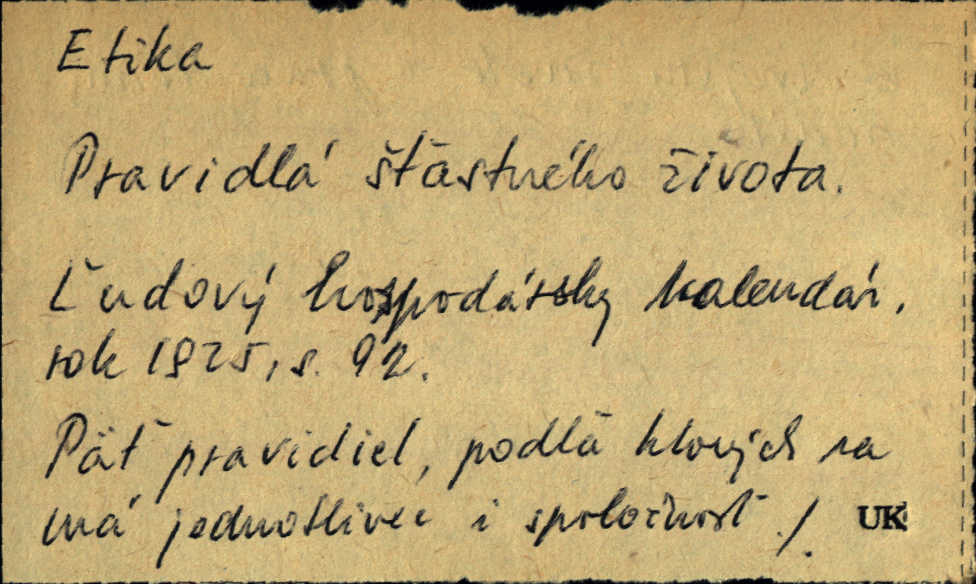 Etika
Pravidlá šťastného života.
Ľudový hospodársky kalendár,
rok 1925, s. 92.
Päť pravidiel, podľa ktorých sa
má jednotlivec i spoločnosť ./. UK